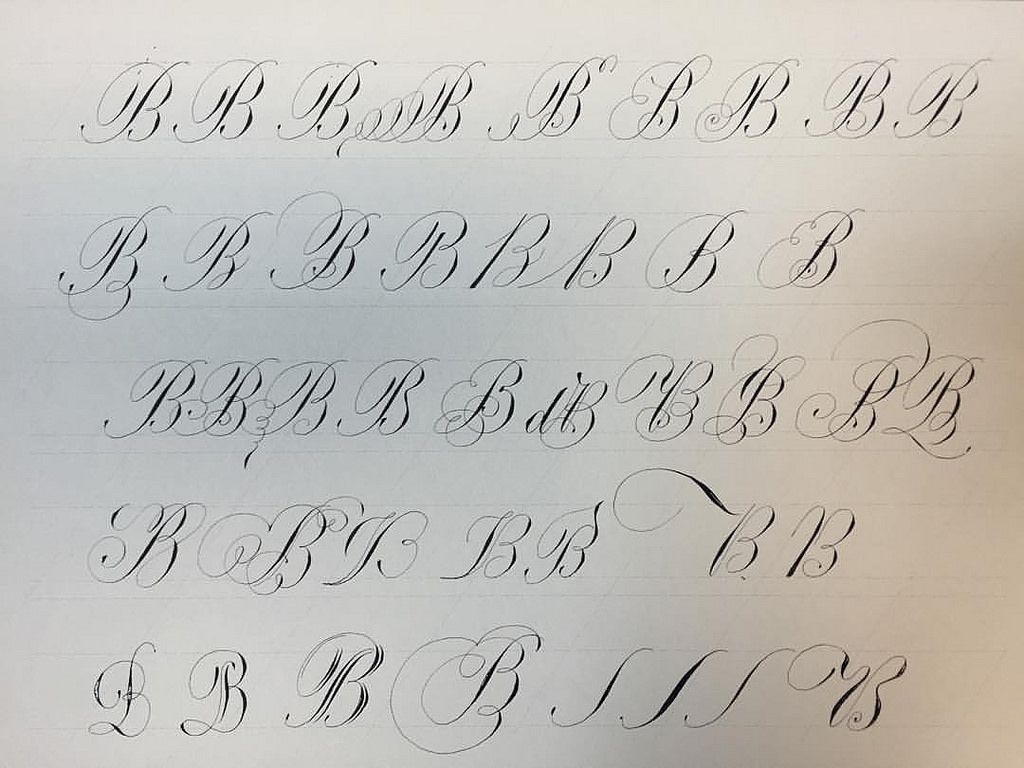 B B B B B B B B B
B B B B B B B B
B B B B B B B B B B
B B B B B B B
B B B B B